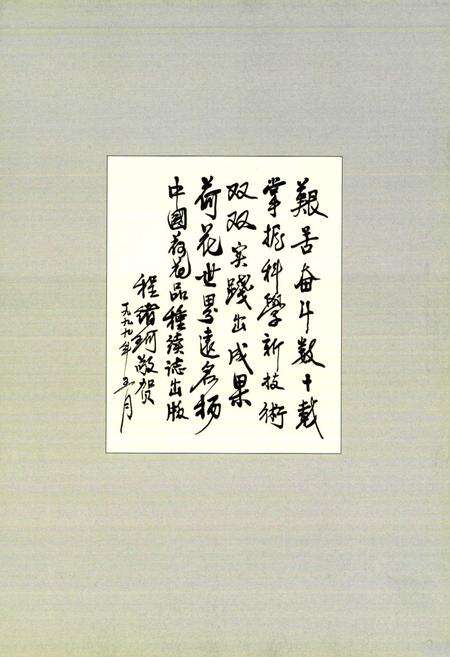 艱苦奋斗数十载
掌握科學新技術
双双实踐出成果
荷花世界遠名扬
中國荷花品種续志出版
程绪珂敬贺
一九九九年五月